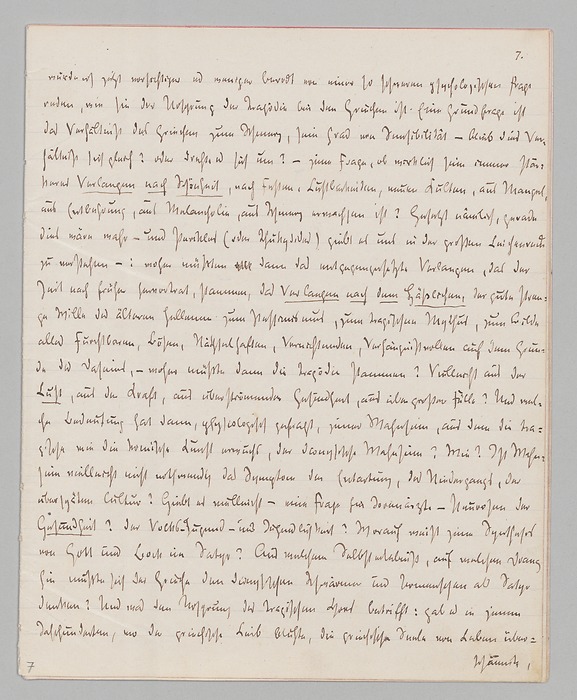 7.
würde ich jetzt vorsichtiger und weniger beredt von einer so schweren psychologischen Frage
reden, wie sie der Ursprung der Tragödie bei den Griechen ist. Eine Grundfrage ist
das Verhältniss des Griechen zum Schmerz, sein Grad von Sensibilität — blieb dies Ver-
hältniss sich gleich? oder drehte es sich um? — jene Frage, ob wirklich sein immer stär-
keres Verlangen nach Schönheit, nach Festen, Lustbarkeiten, neuen Culten, aus Mangel,
aus Entbehrung, aus Melancholie, aus Schmerz erwachsen ist? Gesetzt nämlich, gerade
dies wäre wahr — und Perikles (oder Thukydides) giebt es uns in der großen Leichenrede
zu verstehen —: woher müßte dann das entgegengesetzte Verlangen, das der
Zeit nach früher hervortrat, stammen, das Verlangen nach dem Häßlichen, der gute stren-
ge Wille des älteren Hellenen zum Pessimismus, zum tragischen Mythus, zum Bilde
alles Furchtbaren, Bösen, Räthselhaften, Vernichtenden, Verhängnißvollen auf dem Grun-
de des Daseins, — woher müßte dann die Tragödie stammen? Vielleicht aus der
Lust, aus der Kraft, aus überströmender Gesundheit, aus übergroßer Fülle? Und wel-
che Bedeutung hat dann, physiologisch gefragt, jener Wahnsinn, aus dem die tra-
gische wie die komische Kunst erwuchs, der dionysische Wahnsinn? Wie? Ist Wahn-
sinn vielleicht nicht nothwendig das Symptom der Entartung, des Niedergangs, der
überspäten Cultur? Giebt es vielleicht — eine Frage für Irrenärzte — Neurosen der
Gesundheit? der Volks-Jugend und Jugendlichkeit? Worauf weist jene Synthesis
von Gott und Bock im Satyr? Aus welchem Selbsterlebniß, auf welchen Drang
hin mußte sich der Grieche den dionysischen Schwärmer und Urmenschen als Satyr
denken? Und was den Ursprung des tragischen Chors betrifft: gab es in jenen
Jahrhunderten, wo der griechische Leib blühte, die griechische Seele von Leben über-
schäumte,
7